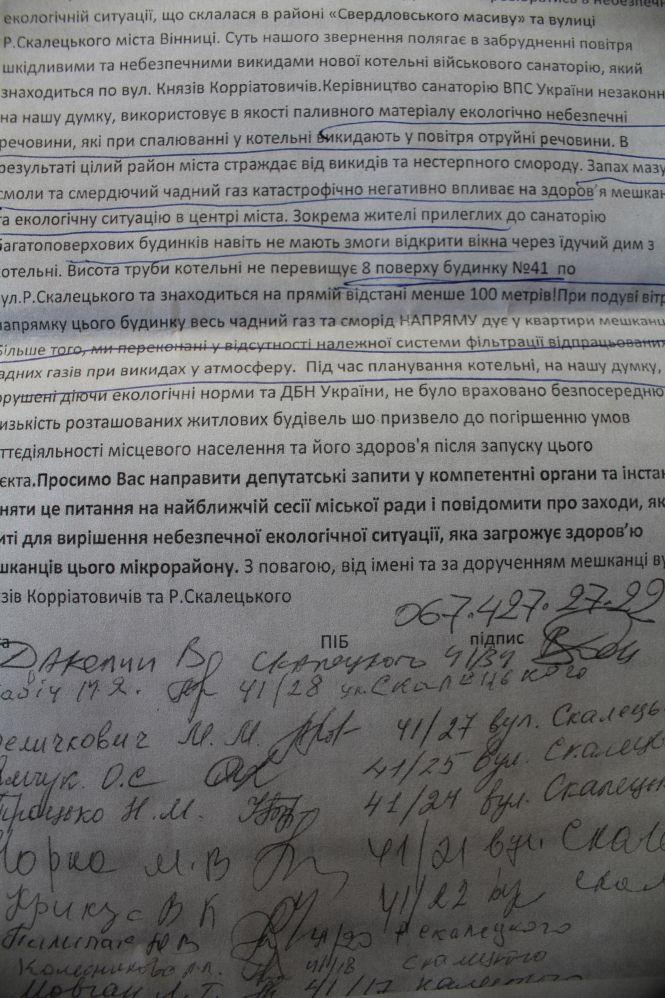 екологічній ситуації, що склалася в районі «Свердловського масиву» та вулиці
Р.Скалецького міста Вінниці. Суть нашого звернення полягає в забрудненні повітря
шкідливими та небезпечними викидами нової котельні військового санаторію, який
знаходиться по вул. Князів Корріатовичів.Керівництво санаторію ВПС України незаконн
на нашу думку, використовує в якості паливного матеріалу екологічно небезпечні
речовини, які при спалюванні у котельні викидають у повітря отруйні речовини. В
результаті цілий район міста страждає від викидів та нестерпного смороду. Запах мазу
смоли та смердючий чадний газ катастрофічно негативно впливає на здоров'я мешкан
та екологічну ситуацію в центрі міста. Зокрема жителі прилеглих до санаторію
багатоповерхових будинків навіть не мають змоги відкрити вікна через їдучий дим з
котельні. Висота труби котельні не перевищує 8 поверху будинку №41 по
вул.Р.Скалецького та знаходиться на прямій відстані менше 100 метрів!При подуві вітр
напрямку цього будинку весь чадний газ та сморід НАПРЯМУ дує у квартири мешканц
Більше того, ми переконані у відсутності належної системи фільтрації відпрацьованих
адних газів при викидах у атмосферу. Під час планування котельні, на нашу думку,
орушені діючи екологічні норми та ДБН України, не було враховано безпосередню
изькість розташованих житлових будівель шо призвело до погіршенню умов
ттєдіяльності місцевого населення та його здоров'я після запуску цього
єкта.Просимо Вас направити депутатські запити у компетентні органи та інстан
няти це питання на найближчій сесії міської ради і повідомити про заходи, як
иті для вирішення небезпечної екологічної ситуації, яка загрожує здоров’ю
шканців цього мікрорайону. З повагою, від імені та за дорученням мешканці ву
язів Корріатовичів та Р.Скалецького
067.427.27.29
та ПІБ підпис
Скалецкого 41/39
41/28 ул.Скалецького
еличкович М.М. 41/27 вул. Скалець
мчук. О.С 41/25 вул. Скалець
Троцько Н.М. 41/24 вул. Скалець
Чорна М.В 41/21 вул. Скале
Крикус В К 41/22 скал
41/20 Р Скалецкого
Колесникова 41/18 скалецкого
Мовчан Л.Т. 41/17